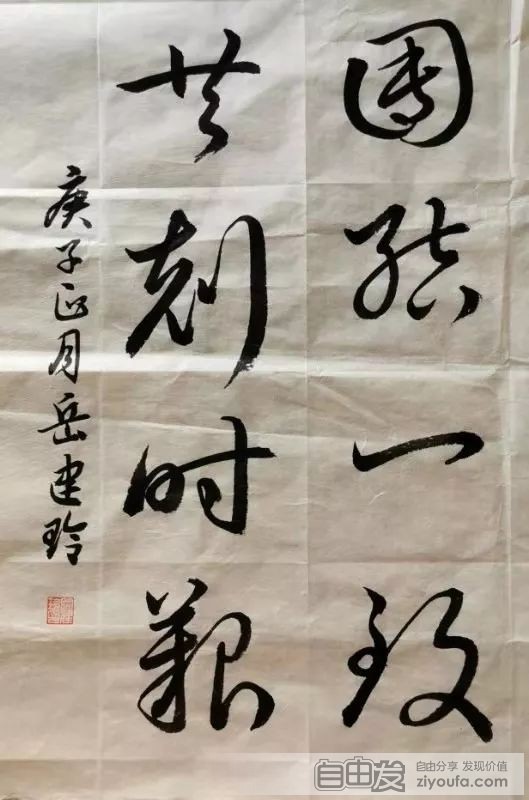 團結一致
共剋时艱
庚子正月岳建玲
自由发
自由分享 发现价值
ziyoufa.com